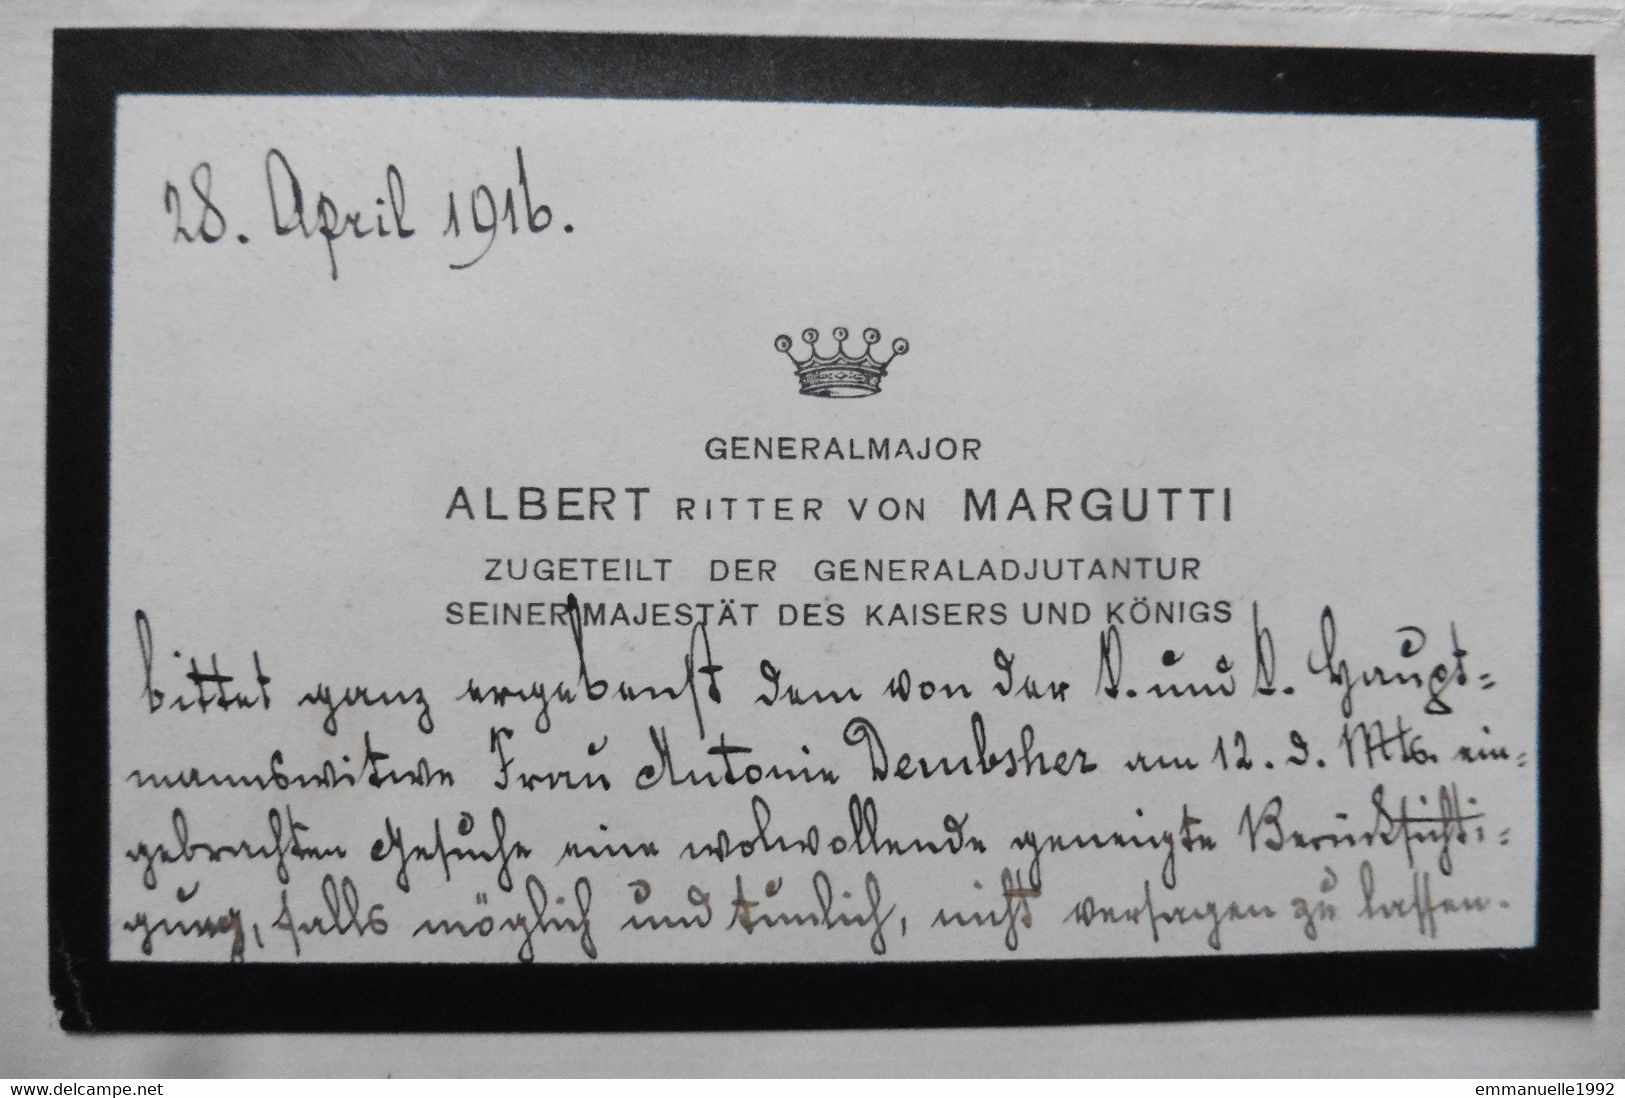 28. April 1916.
GENERALMAJOR
ALBERT RITTER VON MARGUTTI
ZUGETEILT DER GENERALADJUTANTUR
SEINER MAJESTÄT DES KAISERS UND KÖNIGS
bittet ganz ergebenst dem von der k. und k. Haupt=
mannswitwe Frau Antonie Dembsher am 12. d. Mts. ein=
gebrachten Gesuche eine wolwollende geneigte Berücksichti=
gung, falls möglich und tunlich, nicht versagen zu lassen.
www.delcampe.net
emmanuelle1992